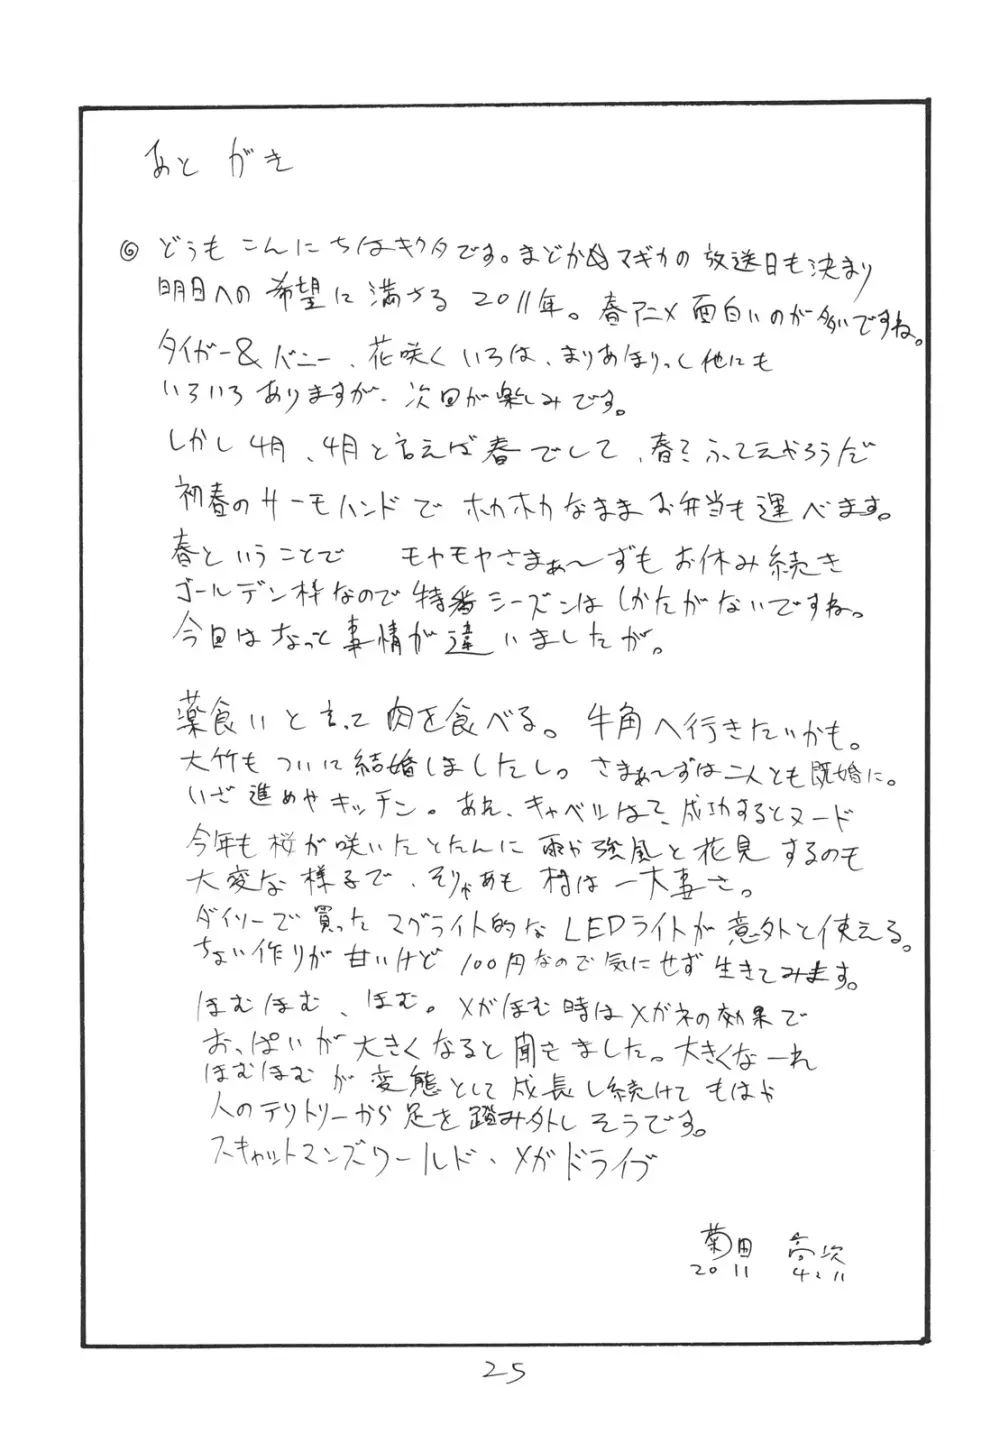 あとがき
◎ どうもこんにちはキクタです。まどか☆マギカの放送日も決まり
明日への希望に満ちる2011年。春アニメ面白いのが多いですね。
タイガー&バニー、花咲くいろは、まりあほりっく他にも
いろいろありますが、次回が楽しみです。
しかし4月、4月と言えば春でして、春
初春のサーモハンドでホカホカなままお弁当も運べます。
春ということで モヤモヤさまぁ〜ずもお休み続き
ゴールデン枠なので特番シーズンはしかたがないですね。
今回はちょっと事情が違いましたが。
薬食いと言って肉を食べる。牛角へ行きたいかも。
大竹もついに結婚しましたし。さまぁ〜ずは二人とも既婚に。
いざ進めやキッチン。あれ、キャベツはて、成功するとヌード
今年も桜が咲いたとたんに雨や強風と花見するのも
大変な様子で、そりゃあも村は一大事さ。
ダイソーで買ったマグライト的なLEDライトが意外と使える。
ちょい作りが甘いけど100円なので気にせず生きてみます。
ほむほむ、ほむ。メガほむ時はメガネの効果で
おっぱいが大きくなると聞きました。大きくなーれ
ほむほむが変態として成長し続けてもはや
人のテリトリーから足を踏み外しそうです。
スキャットマンズワールド・メガドライブ
菊田 高次
2011 4.11
25